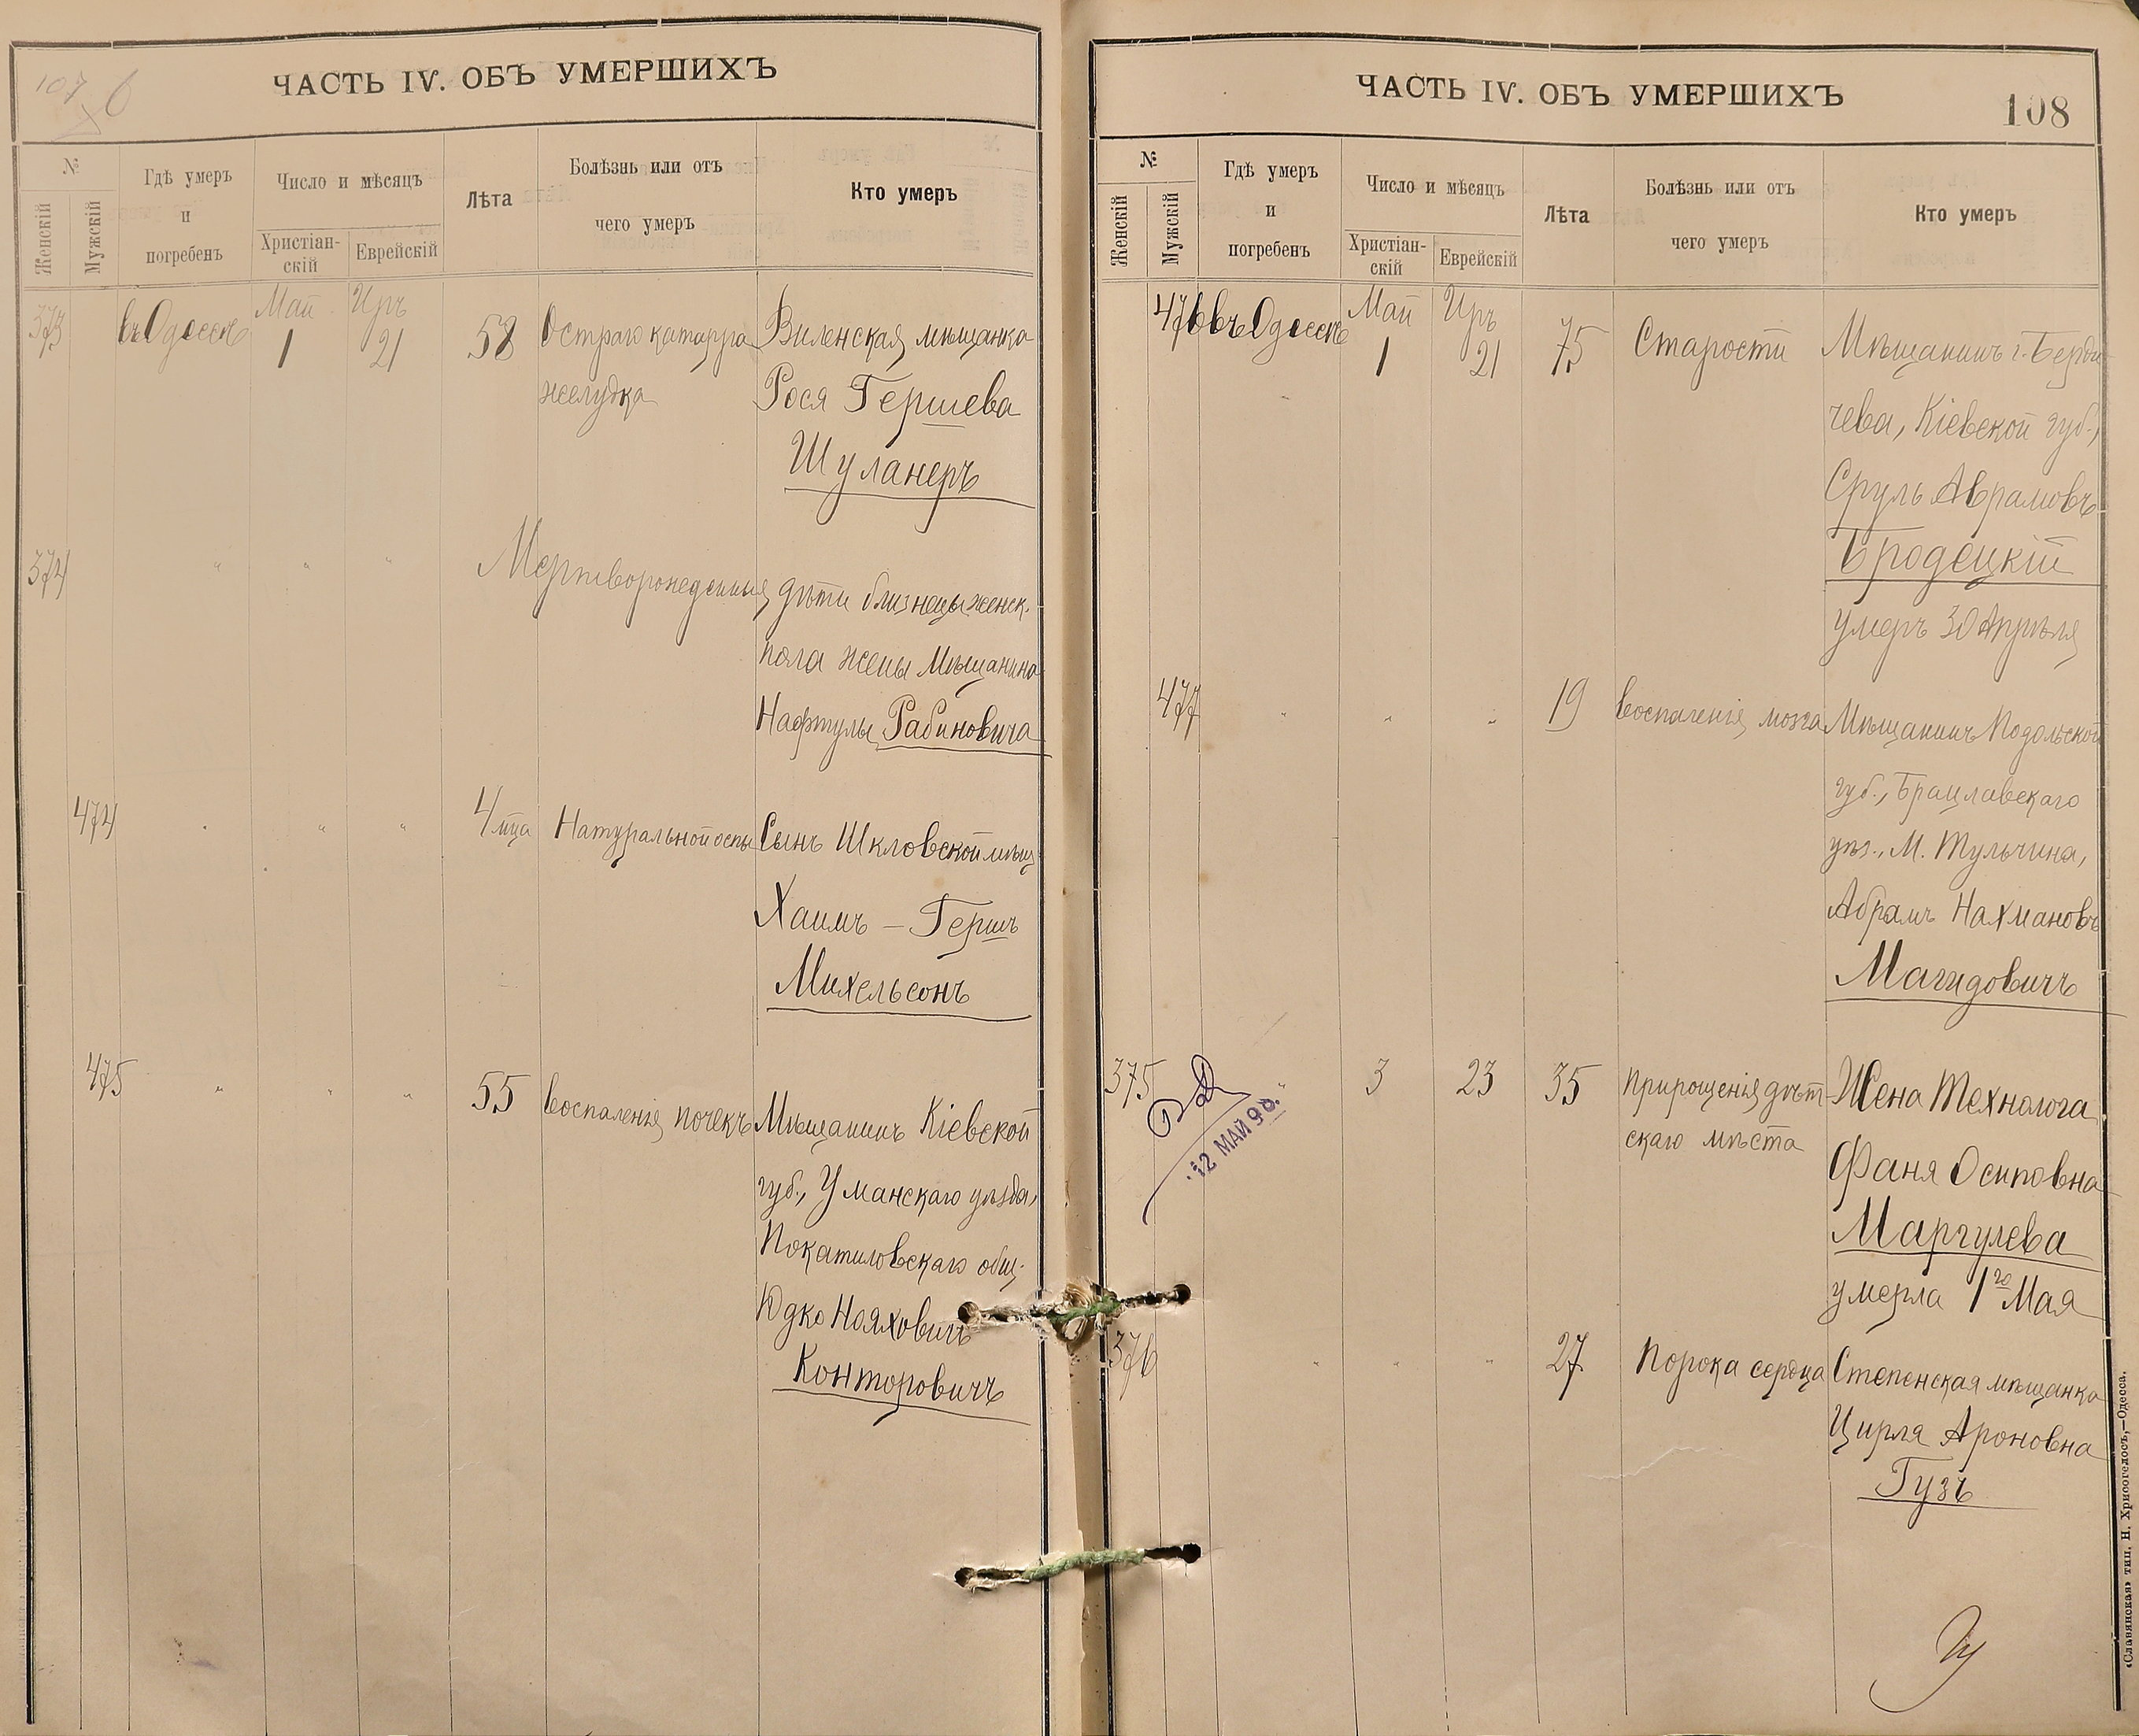 107 б
ЧАСТЬ IV. ОБЪ УМЕРШИХЪ
№
Женскій
Мужскій
Гдѣ умеръ
и
погребенъ
Число и мѣсяцъ
Христіан-
скій
Еврейскій
Лѣта
Болѣзнь или отъ
чего умеръ
Кто умеръ
373
въ Одессѣ
Май
1
Иръ
21
58
Остраго катарра
желудка
Виленская мѣщанка
Рося Гершева
Шуланеръ
374
" " "
Мертворожденныя дѣти близнецы женск.
пола жены Мѣщанина
Нафтулы Рабиновича
474
" " "
4 м̃ца
Натуральной оспы
Сынъ Шкловской мѣщ.
Хаимъ – Гершъ
Михельсонъ
475
" " "
55
Воспаленія почекъ
Мѣщанинъ Кіевской
губ., Уманскаго уѣзда,
Покатиловскаго общ.
Юдко Нояховичъ
Конторовичъ
ЧАСТЬ IV. ОБЪ УМЕРШИХЪ
108
№
Женскій
Мужскій
Гдѣ умеръ
и
погребенъ
Число и мѣсяцъ
Христіан-
скій
Еврейскій
Лѣта
Болѣзнь или отъ
чего умеръ
Кто умеръ
476
въ Одессѣ
Май
1
Иръ
21
75
Старости
Мѣщанинъ г. Берди-
чева, Кіевской губ.,
Сруль Аврамовъ
Бродецкій
умеръ 30 Апрѣля
477
" " "
19
Воспаленія мозга
Мѣщанинъ Подольской
губ., Брацлавскаго
уѣз., М. Тульчина,
Абрамъ Нахмановъ
Магидовичъ
375
"
12 МАЙ 98.
3
23
35
Прирощенія дѣт-
скаго мѣста
Жена Технолога
Фаня Осиповна
Маргулева
умерла 1го Мая
376
" " "
27
Порока сердца
Степенская мѣщанка
Цирля Ароновна
Гузъ
«Славянская» тип. Н. Хрисогелосъ,—Одесса.